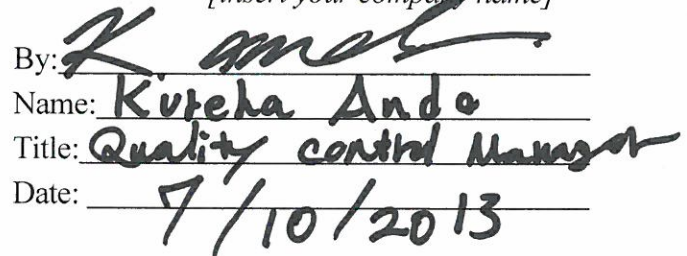 [insert your company name]
By: K. Ando
Name: Kureha Ando
Title: Quality control Manager
Date: 7/10/2013